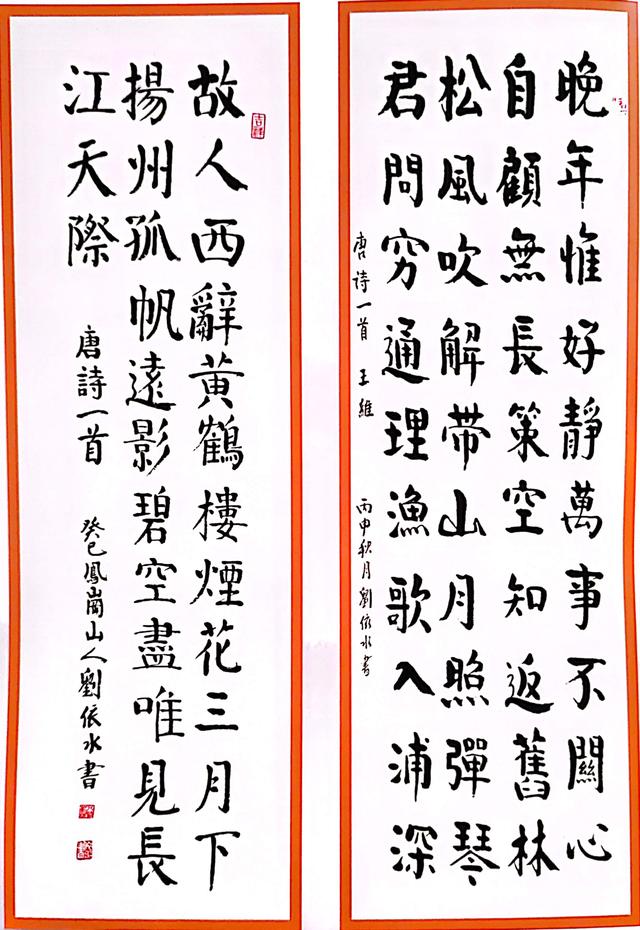 晚年惟好靜萬事不關心
自顧無長策空知返舊林
松風吹解帶山月照彈琴
君問穷通理漁歌入浦深
唐詩一首 王維 丙申秋月劉依水書
故人西辭黄鶴樓煙花三月下
揚州孤帆遠影碧空盡唯見長
江天際
唐詩一首
癸巳鳳崗山人劉依水書